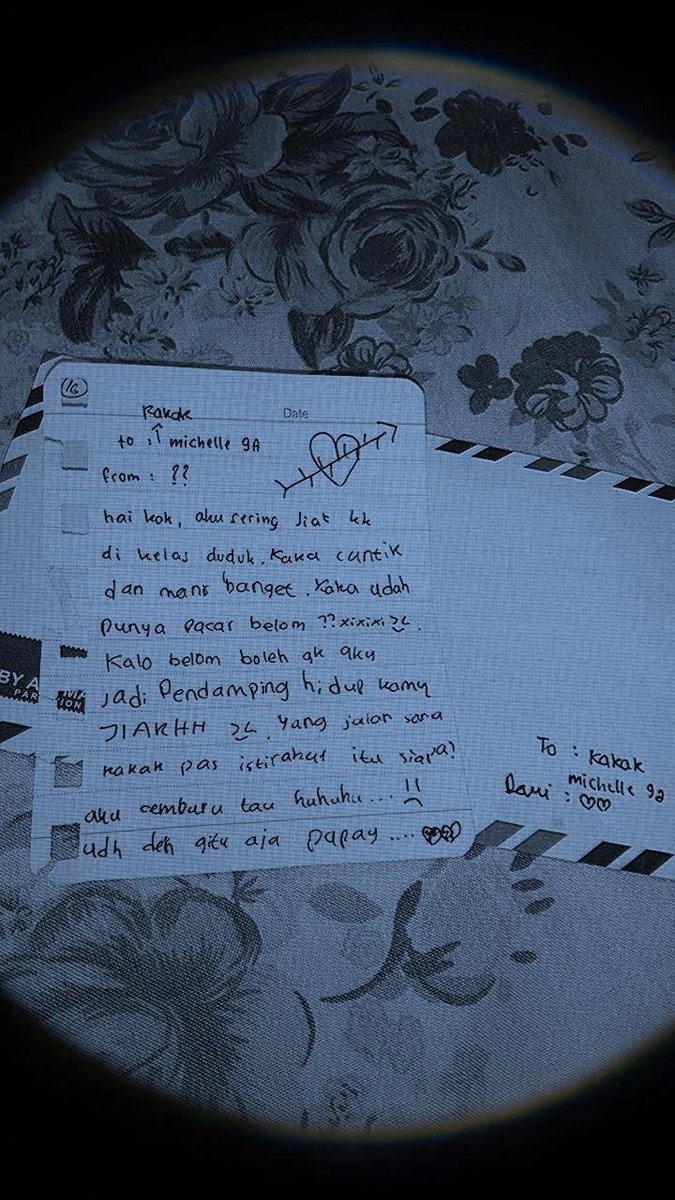 16
Date
Kakak
to : michelle 9A
from : ??
hai kok, aku sering liat kk
di kelas duduk. Kaka cantik
dan manis banget. Kaka udah
punya pacar belom ?? xixixi ><.
Kalo belom boleh gk aku
jadi Pendamping hidup kamu
JIAKHH ><. Yang jalan sama
kakak pas istirahat itu siapa?
aku cemburu tau huhuhu...
udh deh gitu aja papay ....
BY A
PAR
ION
To : Kakak
michelle 9a
Dari : ♡♡